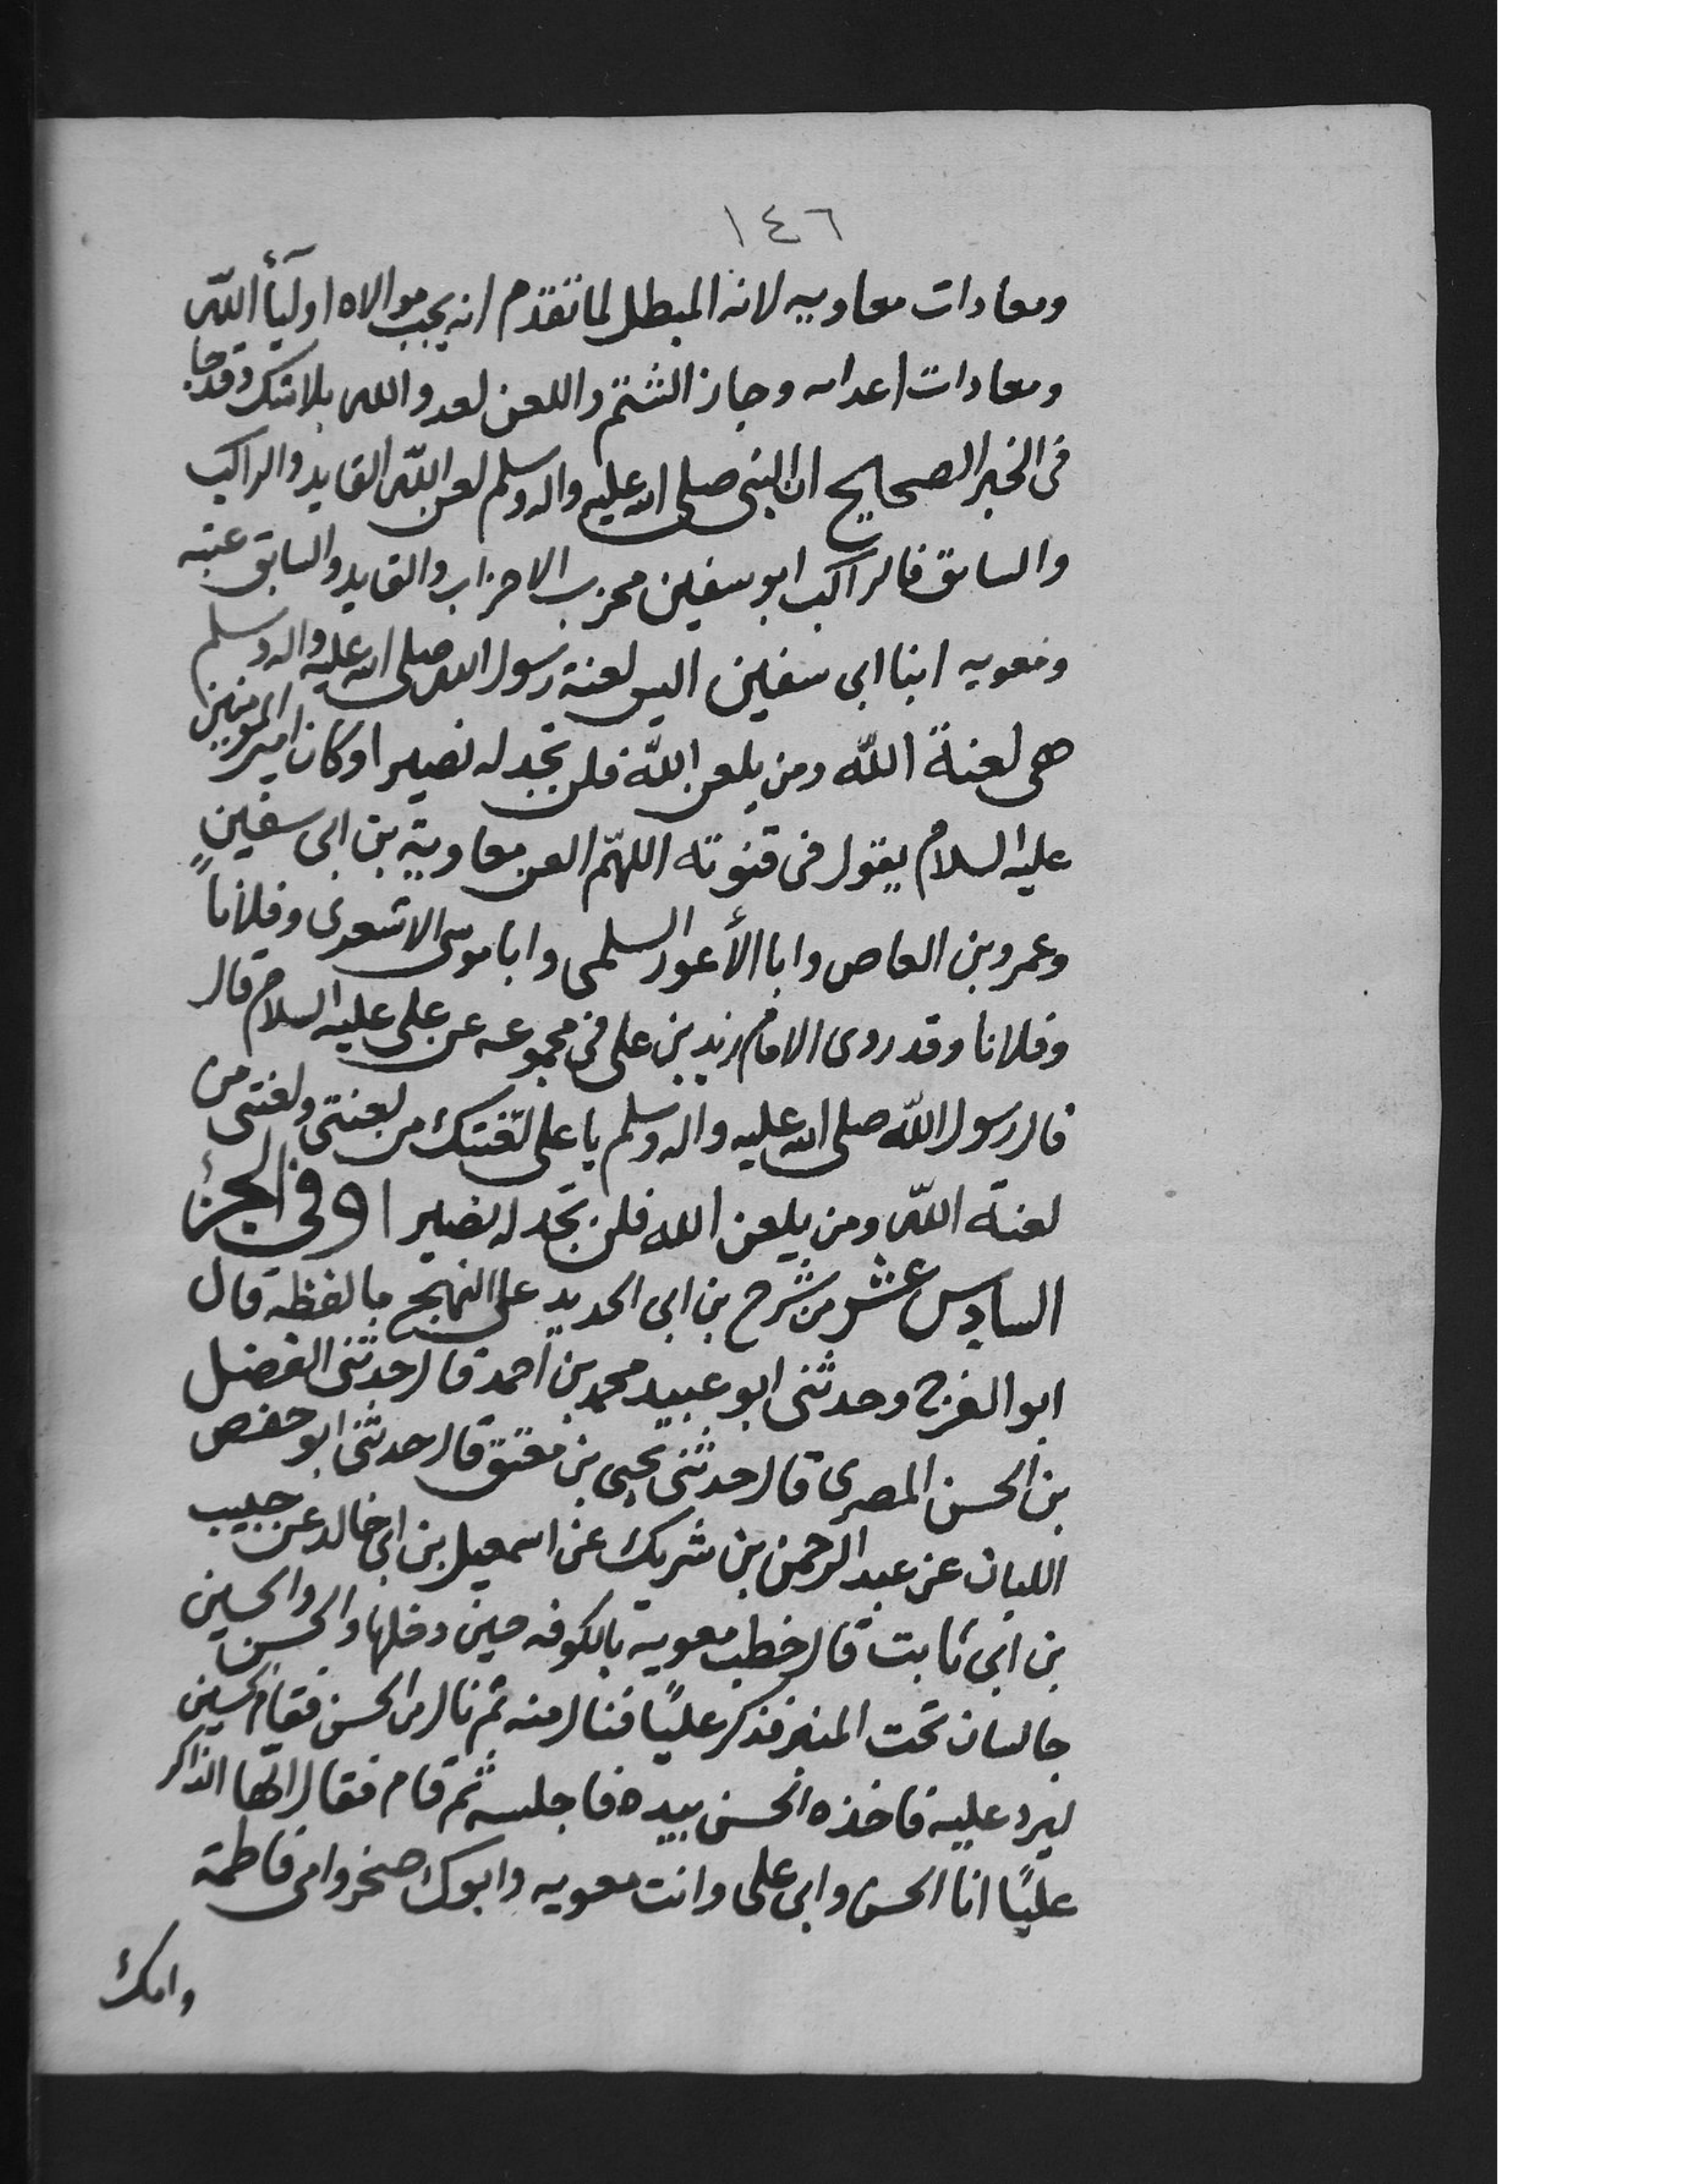 ١٤٦
ومعادات معاويه لانه المبطل لما تقدم انه يجب موالاه اوليآء الله
ومعادات اعداىه وجاز الشتم واللعن لعدو الله بلا شك وقد جا
فى الخبر الصحايح ان النبى صلى الله عليه واله وسلم لعن الله القايد والراكب
والسايق فالراكب ابو سفين محزب الاحزاب والقايد والسايق عتبه
ومعويه ابنا ابى سفين اليس لعنة رسول الله صلى الله عليه واله وسلم
هى لعنة الله ومن يلعن الله فلن تجد له نصيرا وكان امير المومنين
عليه السلام يقول فى قنوته اللهّم العن معاوية بن ابى سفينٍ
وعمرو بن العاص وابا الأعور السلمى وابا موسى الاشعرى وفلاناً
وفلانا وقد روى الامام زيد بن على فى مجموعه عن على عليه السلام قال
قال رسول الله صلى الله عليه واله وسلم يا على لعنتك من لعنتى ولعنتى من
لعنة الله ومن يلعن الله فلن تجد له نصيرا وفى الجزء
السادس عشر من شرح بن ابى الحديد على النهج ما لفظه قال
ابو الفرج وحدثنى ابو عبيد محمد بن احمد قال حدثنى الفضل
بن الحسن المصرى قال حدثنى يحيى بن معتق قال حدثنى ابو حفص
اللبان عن عبد الرحمن بن شريك عن اسمعيل بن ابى خالد عن حبيب
بن ابى ثابت قال خطب معويه بالكوفه حين دخلها والحسن والحسين
جالسان تحت المنبر فذكر عليًا فنال منه ثم نال من الحسن فقام الحسين
ليرد عليه فاخذه الحسن بيده فاجلسه ثم قام فقال ايها الذاكر
عليًا انا الحسن وابى على وانت معويه وابوك صخر وامى فاطمة
وامك